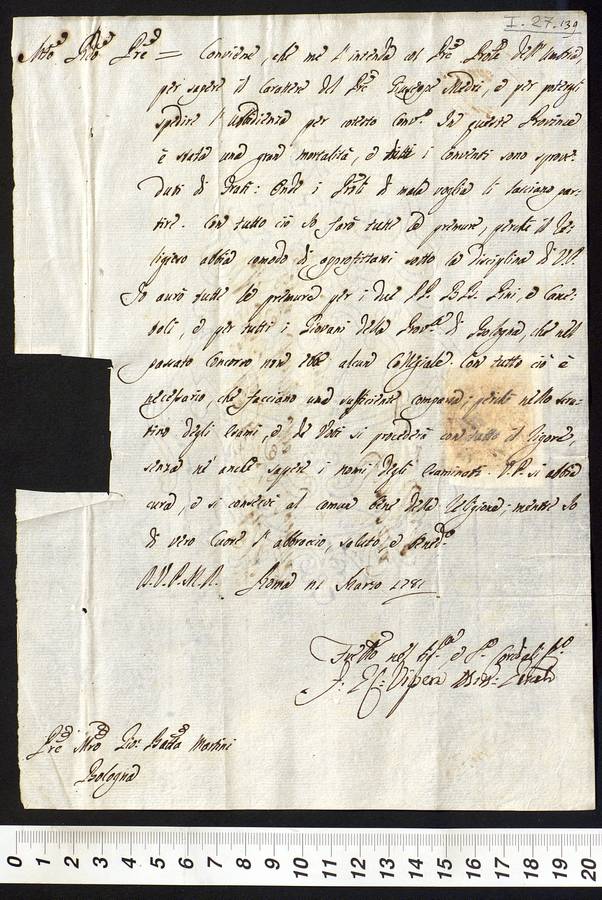 I. 27. 139
Mto Rdo Pre = Conviene, che me l'intenda col Pre Prole dell'Umbria,
per sapere il Carattere del Pre Giuseppe Medri, e per potergli
spedire l'Ubbidienza per cotesto Convto. In queste Provincie
è stata una gran mortalità, e tutti i Conventi sono sprove-
duti di Frati: Onde i Proli di mala voglia li lasciano par-
tire. Con tutto ciò Io farò tutte le premure, perchè il Re-
ligioso abbia comodo di approfittarsi sotto la disciplina di V.P.
Io avrò tutte le premure per i due PP. BB. Pini, e
e per tutti i Giovani della Prova di Bologna, che nel
passato Concorso non ebbe alcun Collegiale. Con tutto ciò è
necessario, che facciano una sufficiente comparsa; perchè nello scru-
tinio degli Esami, e de Voti si procederà con tutto il rigore,
senza nè anche sapere i nomi degli Esaminati. V.P. si abbia
cura, e si conservi al comun bene della Religione; mentre Io
di vero Cuore l'abbraccio, saluto, e benedo
D.V.P.M.R. Roma Marzo 1781
nel
Pre Mro Gio: Batta Martini
Bologna
0 1 2 3 4 5 6 7 8 9 10 11 12 13 14 15 16 17 18 19 20